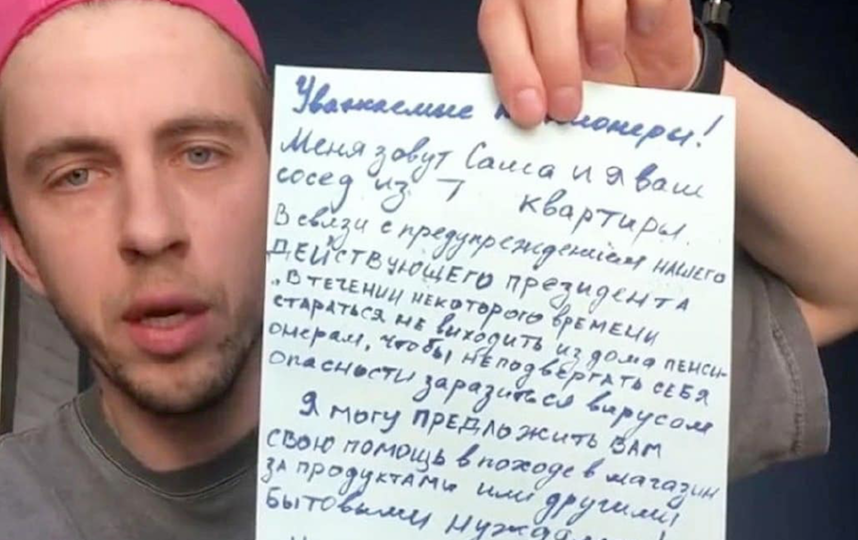 Уважаемые пенсионеры!
Меня зовут Саша и я ваш
сосед из 7 квартиры.
В связи с предупреждением нашего
ДЕЙСТВУЮЩЕГО президента
„В течении некоторого времени
стараться не выходить из дома пенси-
онерам, чтобы неподвергать себя
опасности заразиться вирусом
Я могу предложить вам
свою помощь в походе в магазин
за продуктами или другими
бытовыми